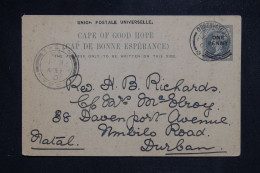 UNION POSTALE UNIVERSELLE.
CAPE OF GOOD HOPE
(CAP DE BONNE ESPÉRANCE)
THE ADDRESS ONLY TO BE WRITTEN ON THIS SIDE.
ONE
PENNY
Rev. H. B. Richards,
c/o Mrs McElroy,
38 Davenport Avenue
Umbilo Road.
Natal. Durban.